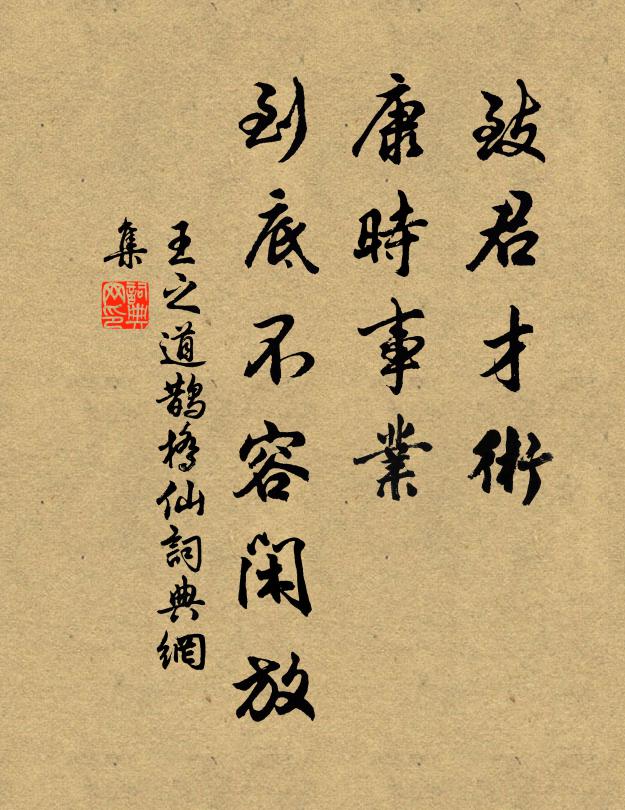 致君才術
康時事業
到底不容閑放
王之道鵲橋仙詞典網
集
詞典
网印